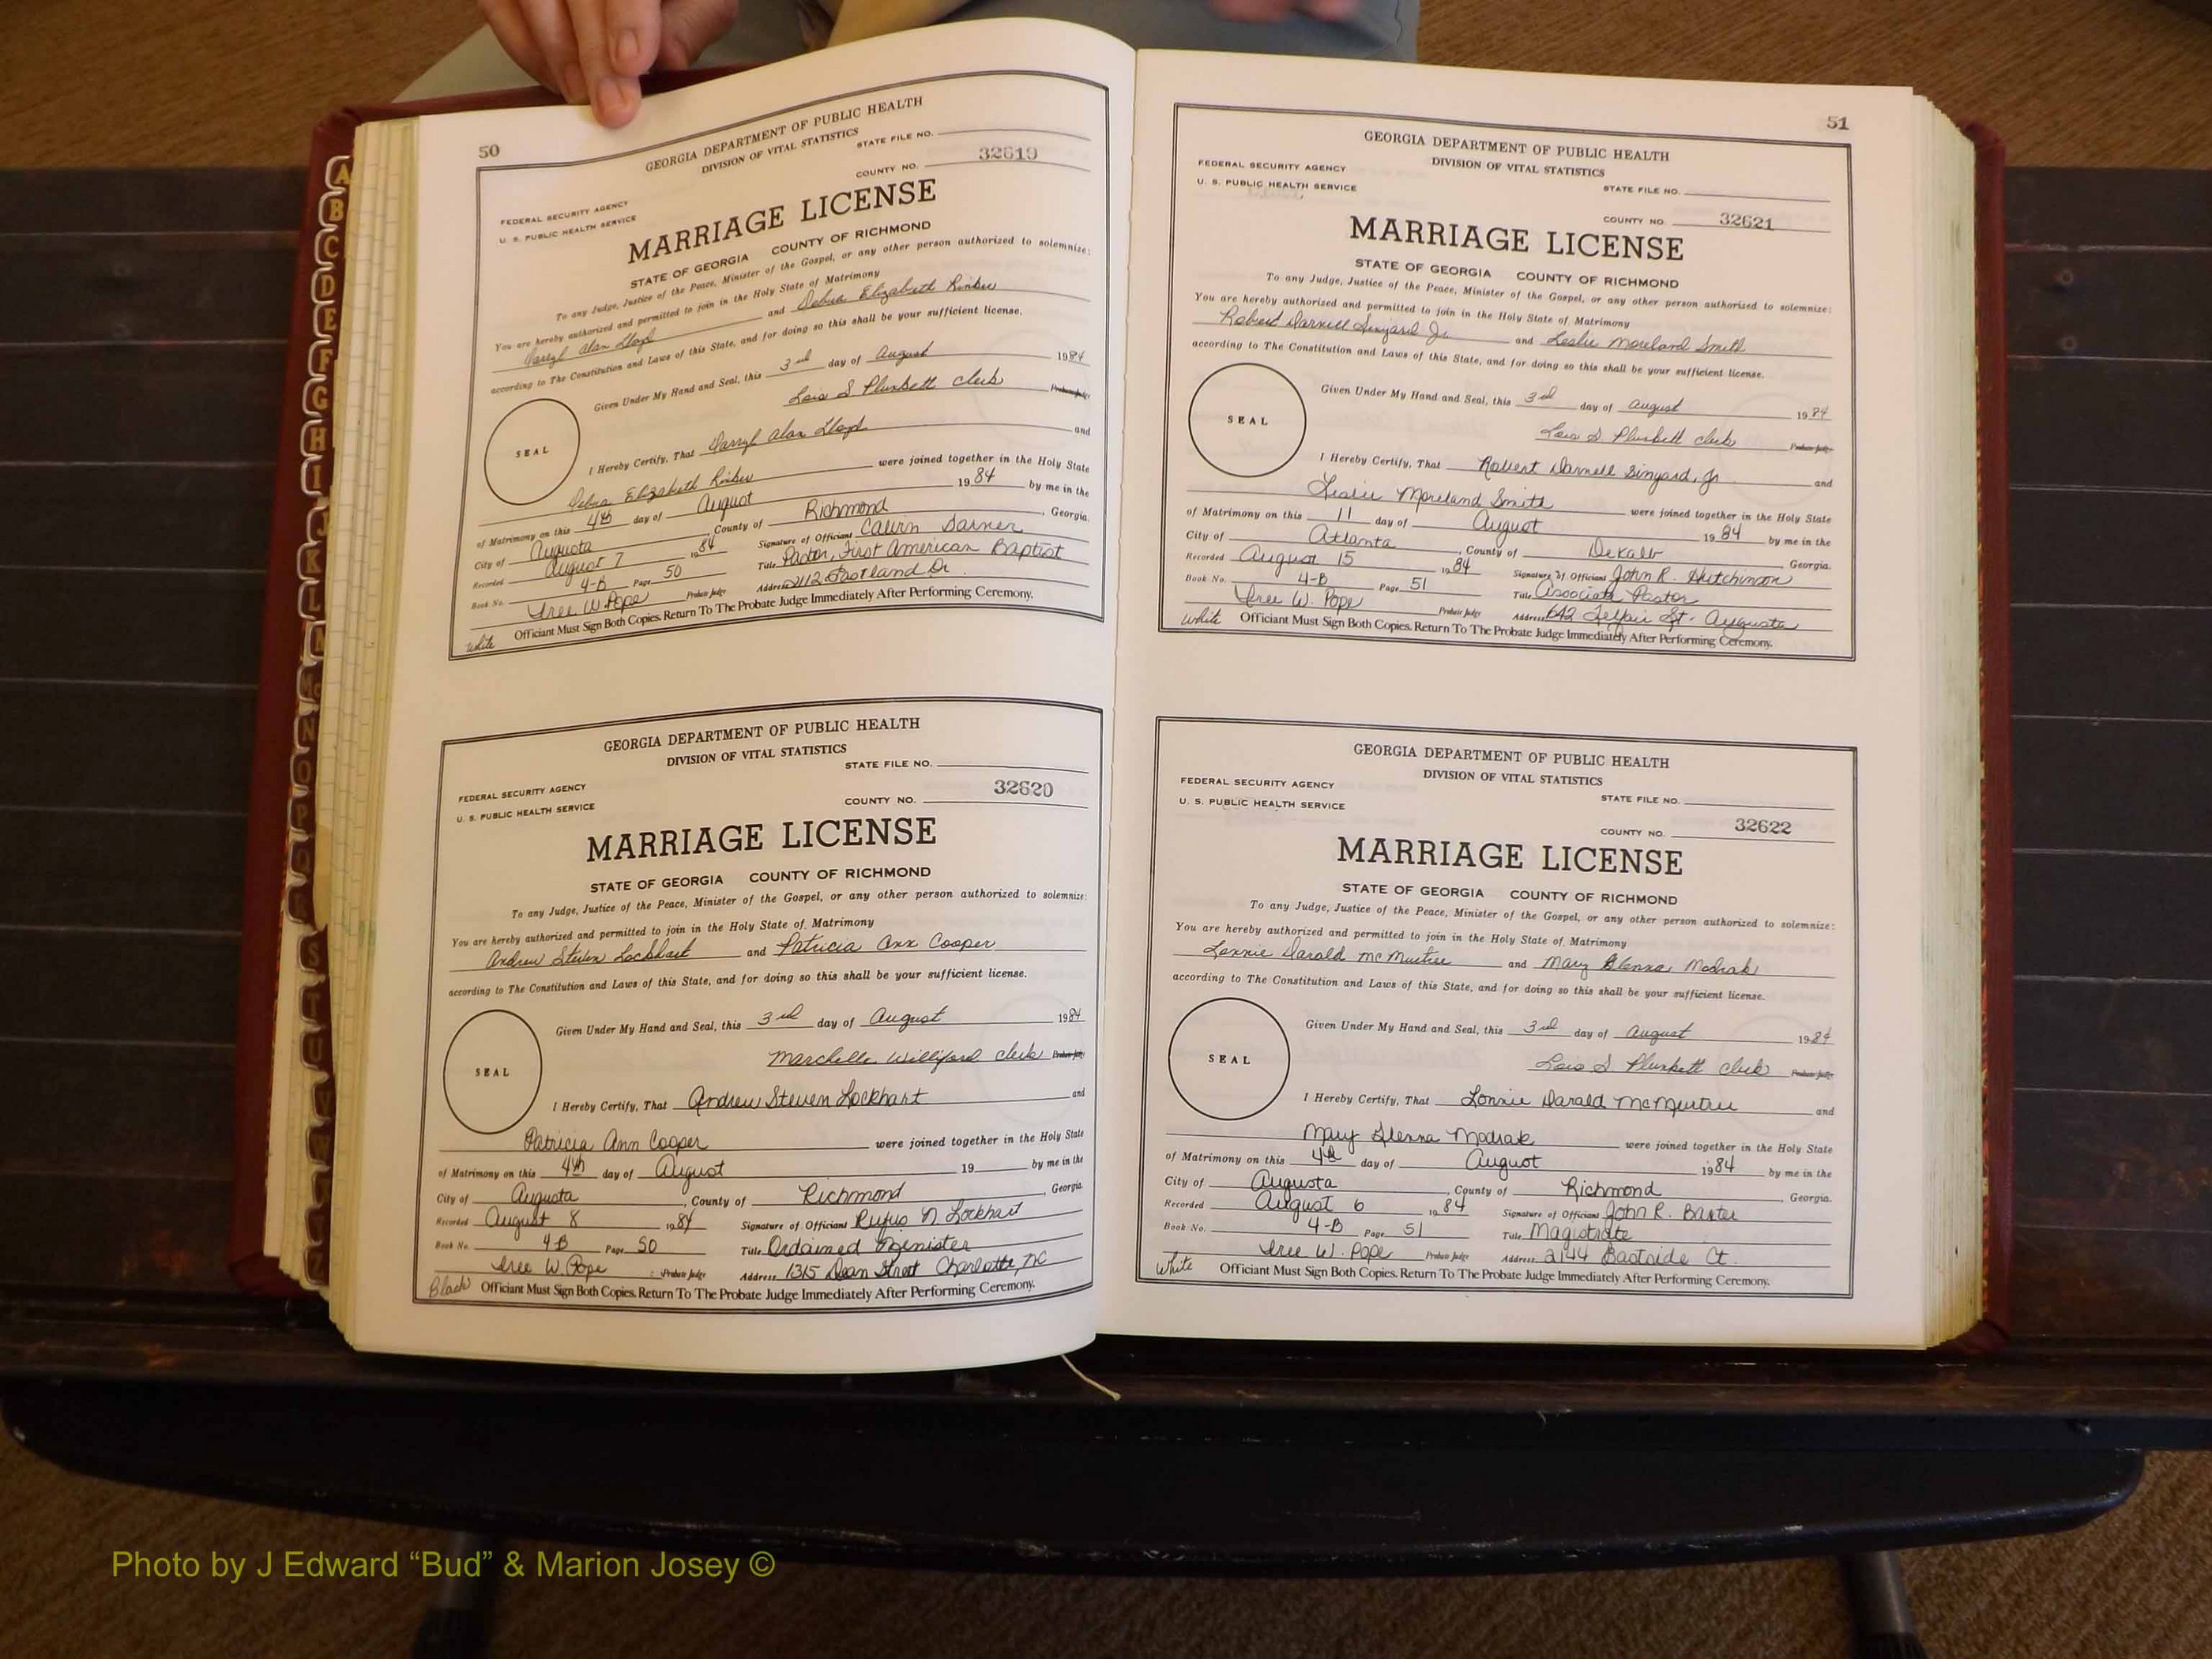 50
GEORGIA DEPARTMENT OF PUBLIC HEALTH
DIVISION OF VITAL STATISTICS
STATE FILE NO.
FEDERAL SECURITY AGENCY
U. S. PUBLIC HEALTH SERVICE
COUNTY NO. 32619
MARRIAGE LICENSE
STATE OF GEORGIA COUNTY OF RICHMOND
To any Judge, Justice of the Peace, Minister of the Gospel, or any other person authorized to solemnize:
You are hereby authorized and permitted to join in the Holy State of Matrimony
Darryl Alan Lloyd and Debra Elizabeth
according to The Constitution and Laws of this State, and for doing so this shall be your sufficient license.
Given Under My Hand and Seal, this 3rd day of August 1984
Lois S Plunkett clerk Probate Judge
SEAL
I Hereby Certify, That Darryl Alan Lloyd and
Debra Elizabeth were joined together in the Holy State
of Matrimony on this 4th day of August 1984 by me in the
City of Augusta, County of Richmond, Georgia.
Recorded August 7 1984 Signature of Officiant
Book No. 4-B Page 50 Title Pastor, First American Baptist
Iree W. Pope Probate Judge Address 2112 Eastland Dr.
White Officiant Must Sign Both Copies. Return To The Probate Judge Immediately After Performing Ceremony.
GEORGIA DEPARTMENT OF PUBLIC HEALTH
DIVISION OF VITAL STATISTICS
STATE FILE NO.
FEDERAL SECURITY AGENCY
U. S. PUBLIC HEALTH SERVICE
COUNTY NO. 32620
MARRIAGE LICENSE
STATE OF GEORGIA COUNTY OF RICHMOND
To any Judge, Justice of the Peace, Minister of the Gospel, or any other person authorized to solemnize:
You are hereby authorized and permitted to join in the Holy State of Matrimony
Andrew Steven Lockhart and Patricia Ann Cooper
according to The Constitution and Laws of this State, and for doing so this shall be your sufficient license.
Given Under My Hand and Seal, this 3rd day of August 1984
Marchelle Williford clerk Probate Judge
SEAL
I Hereby Certify, That Andrew Steven Lockhart and
Patricia Ann Cooper were joined together in the Holy State
of Matrimony on this 4th day of August 19 by me in the
City of Augusta, County of Richmond, Georgia.
Recorded August 8 1984 Signature of Officiant Rufus N Lockhart
Book No. 4B Page 50 Title Ordained Menister
Iree W Pope Probate Judge Address 1315 Dean Street Charlotte, NC
Black Officiant Must Sign Both Copies. Return To The Probate Judge Immediately After Performing Ceremony.
51
GEORGIA DEPARTMENT OF PUBLIC HEALTH
DIVISION OF VITAL STATISTICS
FEDERAL SECURITY AGENCY
U. S. PUBLIC HEALTH SERVICE
STATE FILE NO.
COUNTY NO. 32621
MARRIAGE LICENSE
STATE OF GEORGIA COUNTY OF RICHMOND
To any Judge, Justice of the Peace, Minister of the Gospel, or any other person authorized to solemnize:
You are hereby authorized and permitted to join in the Holy State of Matrimony
Robert Darnell Sinyard Jr. and Leslie Moreland Smith
according to The Constitution and Laws of this State, and for doing so this shall be your sufficient license.
Given Under My Hand and Seal, this 3rd day of August 1984
Lois S Plunkett clerk Probate Judge
SEAL
I Hereby Certify, That Robert Darnell Sinyard, Jr and
Leslie Moreland Smith were joined together in the Holy State
of Matrimony on this 11 day of August 1984 by me in the
City of Atlanta, County of DeKalb Georgia.
Recorded August 15 1984 Signature of Officiant John R. Hutchinson
Book No. 4-B Page 51 Title Associate Pastor
Iree W. Pope Probate Judge Address 642 Telfair St. Augusta
White Officiant Must Sign Both Copies. Return To The Probate Judge Immediately After Performing Ceremony.
GEORGIA DEPARTMENT OF PUBLIC HEALTH
DIVISION OF VITAL STATISTICS
FEDERAL SECURITY AGENCY
U. S. PUBLIC HEALTH SERVICE
STATE FILE NO.
COUNTY NO. 32622
MARRIAGE LICENSE
STATE OF GEORGIA COUNTY OF RICHMOND
To any Judge, Justice of the Peace, Minister of the Gospel, or any other person authorized to solemnize:
You are hereby authorized and permitted to join in the Holy State of Matrimony
Lonnie Darald McMurtrie and Mary Glenna Modrak
according to The Constitution and Laws of this State, and for doing so this shall be your sufficient license.
Given Under My Hand and Seal, this 3rd day of August 1984
Lois S. Plunkett clerk Probate Judge
SEAL
I Hereby Certify, That Lonnie Darald McMurtrie and
Mary Glenna Modrak were joined together in the Holy State
of Matrimony on this 4th day of August 1984 by me in the
City of Augusta, County of Richmond, Georgia.
Recorded August 6 1984 Signature of Officiant John R. Baxter
Book No. 4-B Page 51 Title Magistrate
Iree W. Pope Probate Judge Address 2144 Eastside Ct.
White Officiant Must Sign Both Copies. Return To The Probate Judge Immediately After Performing Ceremony.
Photo by J Edward “Bud” & Marion Josey ©